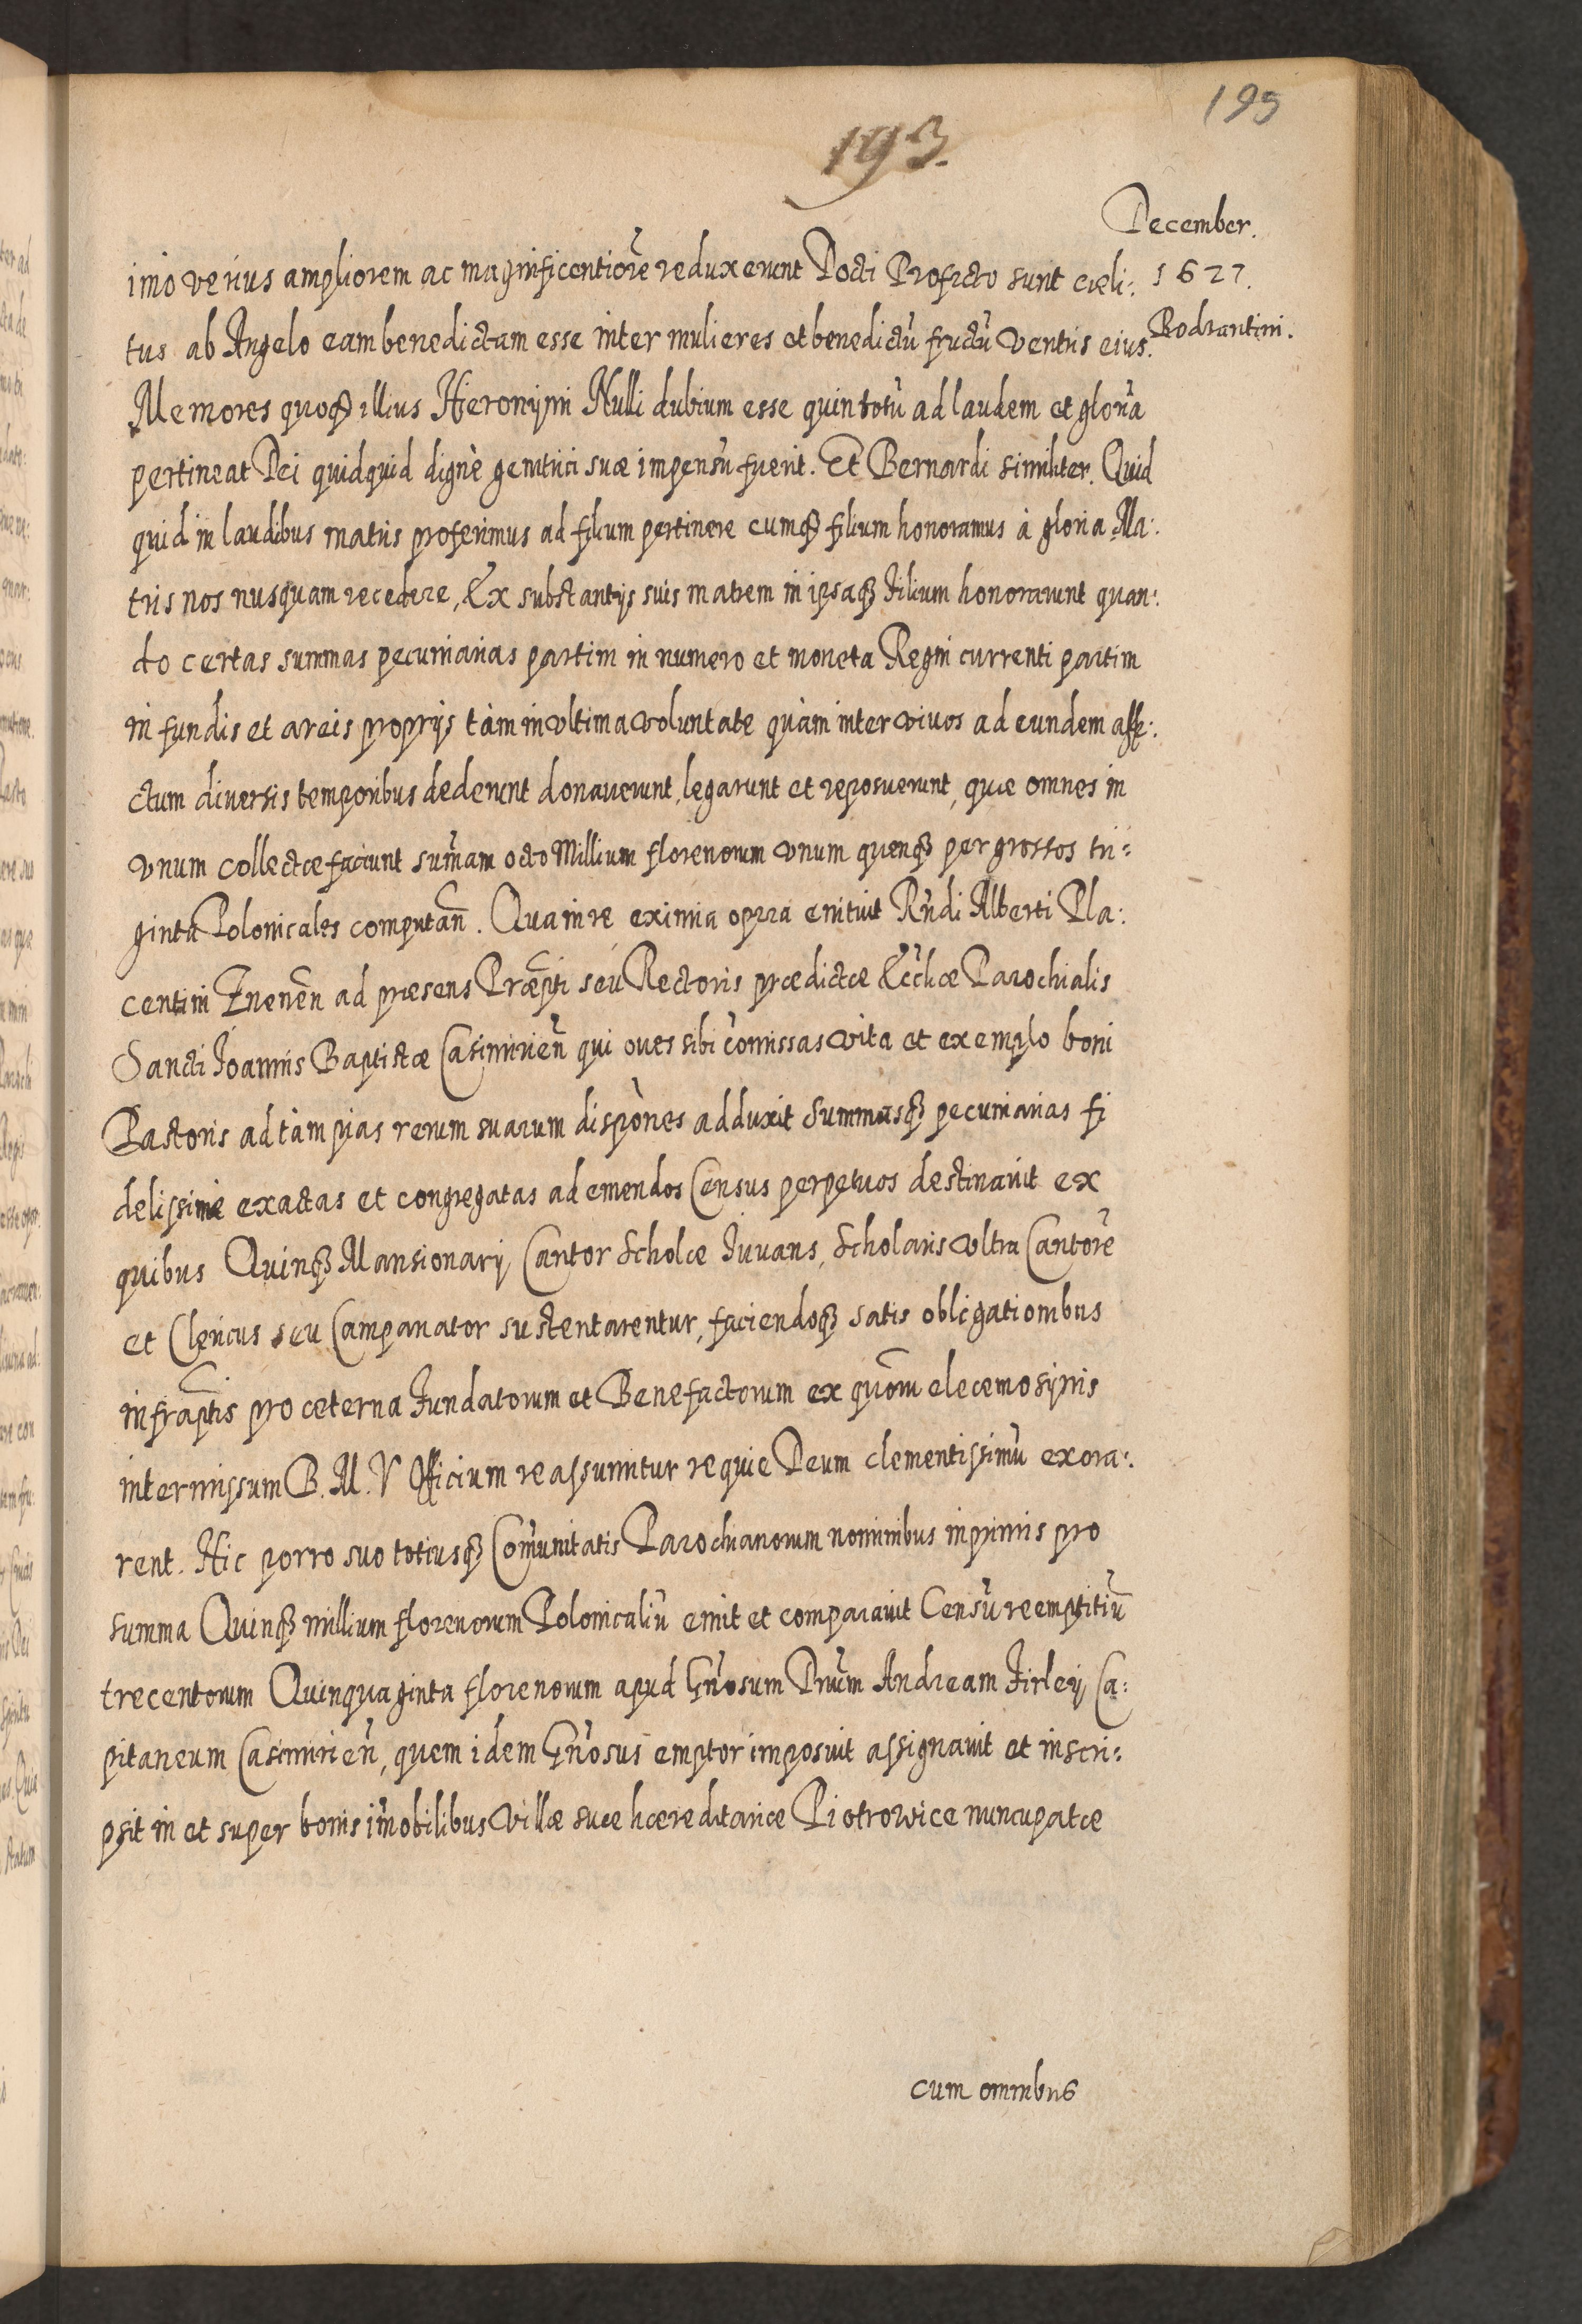 195
193.
December.
1627.
Bodzantini.
imo verius ampliorem ac magnificentiorē reduxerunt Docti Profecto sunt cæli:
tus ab Angelo eam benedictam esse inter mulieres et benedictū fructū ventris eius.
Memores quoqȝ illius Hieronymi Nulli dubium esse quin totū ad laudem et gloriā
pertineat Dei quidquid dignè genitrici suæ impensū fuerit. Et Bernardi similiter. Quid
quid in laudibus matris proferimus ad filium pertinere cumqȝ filium honoramus à gloria Ma:
tris nos nusquam recedere, Ex substantijs suis matrem in ipsaqȝ Filium honorarunt quan:
do certas summas pecuniarias partim in numero et moneta Regni currenti partim
in fundis et areis proprijs tàm in vltima voluntate quàm inter vivos ad eundem affe:
ctum diuersis temporibus dederunt donauerunt, legarunt et reposuerunt, quæ omnes in
vnum collectæ faciunt sum̄am octo Millium florenorum vnum quenqȝ per grossos tri:
ginta Polonicales computan̄. Qua in re eximia opera enituit Rn̄di Alberti Pla:
centini Znenen̄ ad præsens Præpti seu Rectoris prædictæ Eccliæ Parochialis
Sancti Joannis Baptistæ Casimirien̄ qui oues sibi com̄issas vita et exemplo boni
Pastoris ad tàm pias rerum suarum dispōnes adduxit Summasqȝ pecuniarias fi
delissimè exactas et congregatas ad emendos Census perpetuos destinauit ex
quibus Quinqȝ Mansionarij Cantor Scholæ Juuans, Scholaris vltra Cantorē
et Clericus seu Campanator sustentarentur, faciendoqȝ satis obligationibus
infrap̄tis pro æterna Fundatorum et Benefactorum ex quōrū eleemosynis
intermissum B. M. V Officium reassumitur requie Deum clementissimū exora:
rent. Hic porro suo totiusqȝ Com̄unitatis Parochianorum nominibus inprimis pro
summa Quinqȝ millium florenorum Polonicaliū emit et comparauit Censū reemptitiū
trecentorum Quinquaginta florenorum apud Gn̄osum Dnūm Andream Firley Ca:
pitaneum Casimirien̄, quem idem Gn̄osus emptor imposuit assignauit et inscri:
psit in et super bonis im̄obilibus Villæ suæ hæreditariæ Piotrowice nuncupatæ
cum omnibus